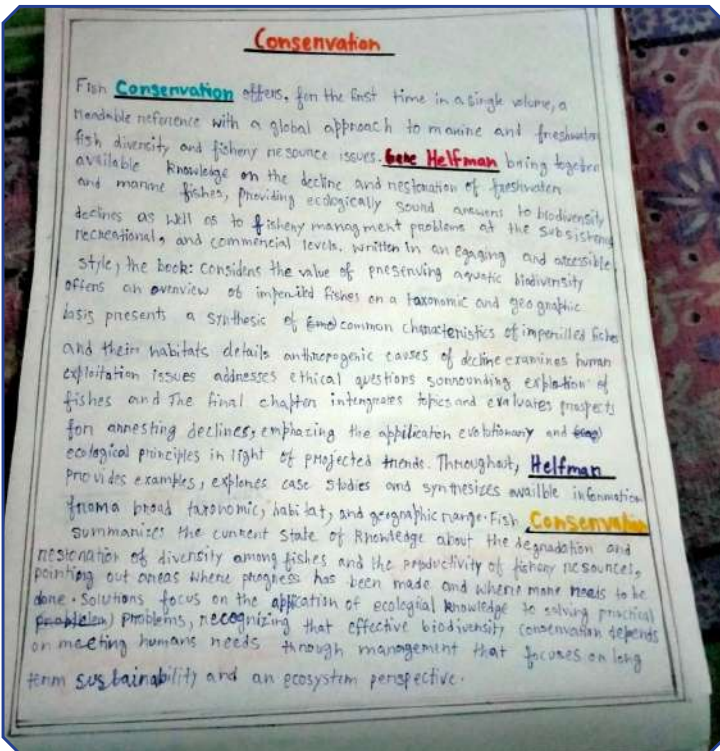 Consenvation
Fish Consenvation offens, fon the first time in a single volume, a
neadable nefenence with a global appnoach to manine and fneshwaten
fish divensity and fisheny nesounce issues. Gene Helfman bning togethen
available knowledge on the decline and nestonation of fneshwaten
and manine fishes, pnoviding ecologically sound answens to biodivensity
declines as well as to fisheny managment pnoblems at the subsistence
necneational, and commencial levels. wnitten in an egaging and accessible
style, the book: considens the value of pnesenving aquatic biodivensity
offens an ovenview of impeniled fishes on a taxonomic and geognaphic
basis pnesents a synthesis of common chanactenistics of impenilled fishes
and thein habitats details anthnopogenic causes of decline examines human
exploitation issues addnesses ethical questions sonnounding explotion of
fishes and The final chapten intengnates topics and evaluates pnospects
fon annesting declines, emphazing the application evolutionany and
ecological pninciples in light of pnojected tnends. Thnoughout, Helfman
pnovides examples, explones case studies and synthesizes availble infonmation
fnoma bnoad taxonomic, habitat, and geognaphic nange. Fish Consenvation
summanizes the cunnent state of knowledge about the degnadation and
nestonation of divensity among fishes and the pnoductivity of fisheny nesounces,
pointing out aneas whene pnogness has been made and whene mone needs to be
done. Solutions focus on the application of ecologial knowledge to solving pnactical
pnoblems, necognizing that effective biodivensity consenvation depends
on meeting humans needs thnough management that focuses on long
tenm sustainability and an ecosystem penspective.